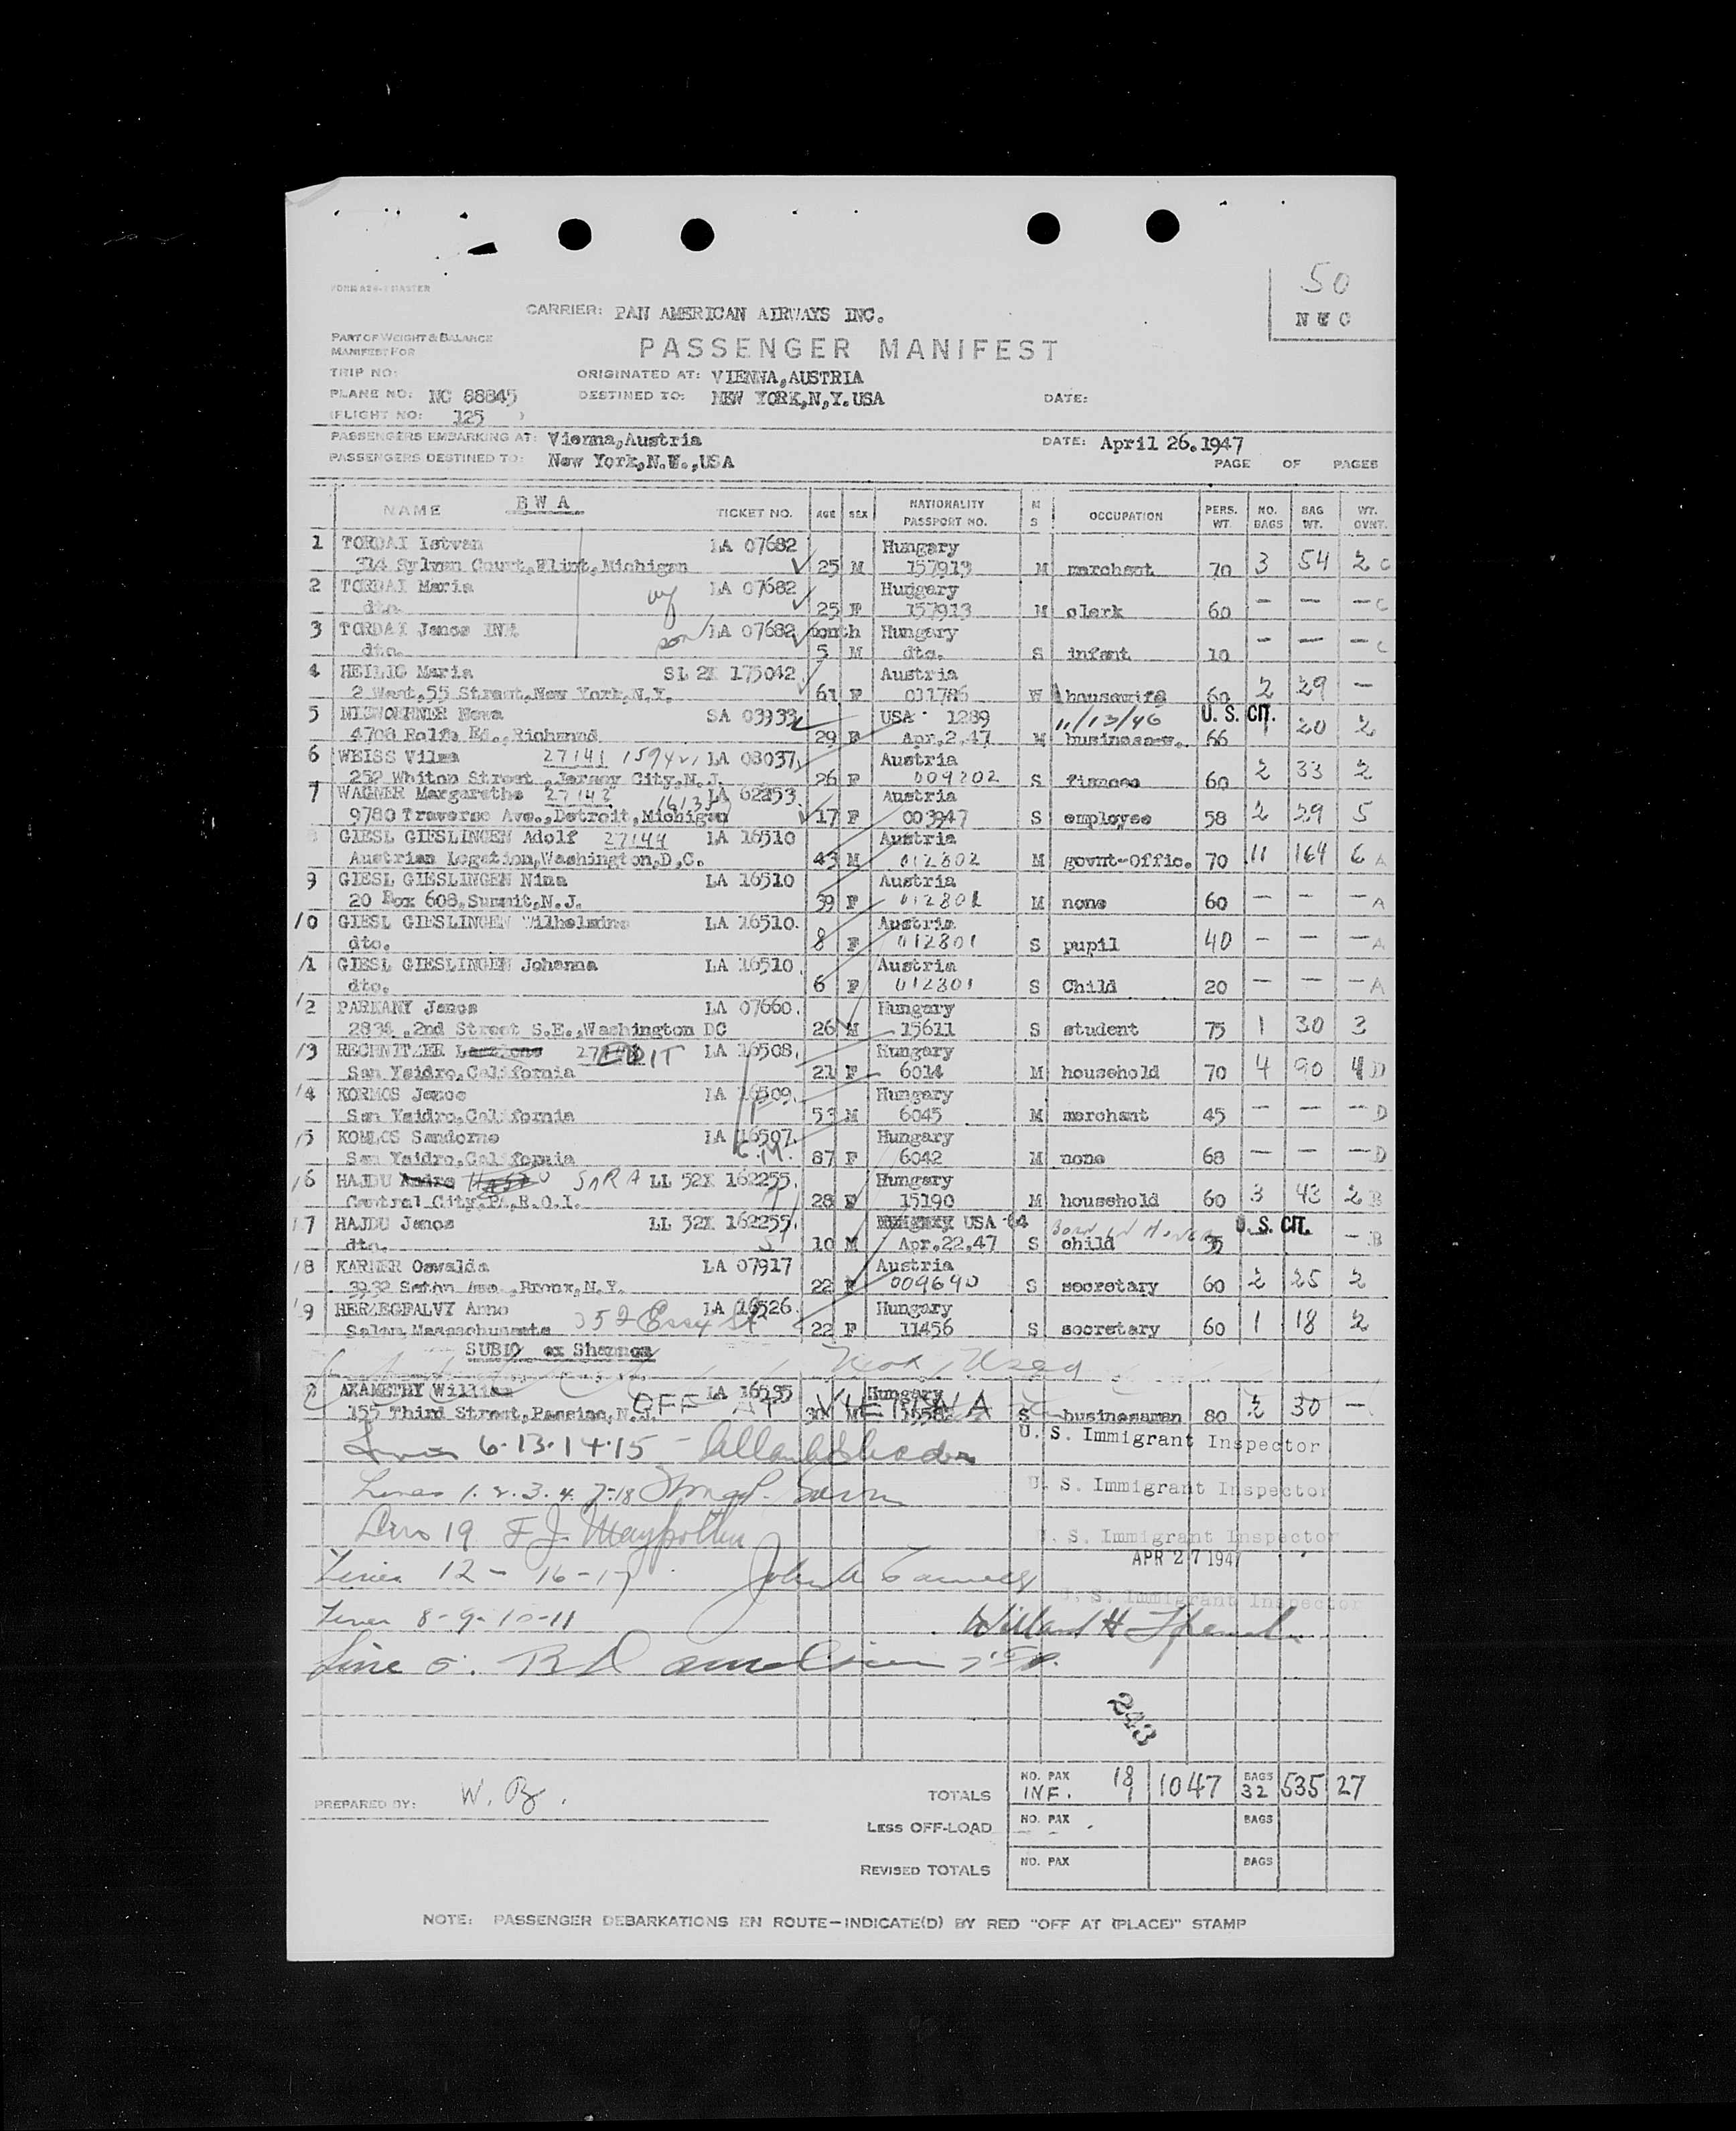 50
NYC
CARRIER: PAN AMERICAN AIRWAYS INC.
PART OF WEIGHT & BALANCE
MANIFEST FOR
PASSENGER MANIFEST
TRIP NO:
ORIGINATED AT: VIENNA,AUSTRIA
PLANE NO: NC 88845
DESTINED TO: NEW YORK,N,Y.USA
DATE:
(FLIGHT NO: 125 )
PASSENGERS EMBARKING AT: Vienna,Austria
DATE: April 26.1947
PASSENGERS DESTINED TO: New York,N.Y.,USA
PAGE OF PAGES
NAME BWA TICKET NO. AGE SEX NATIONALITY PASSPORT NO. M S OCCUPATION PERS. WT. NO. BAGS BAG WT. WT. OVNT.
1 TORDAI Istvan LA 07682 Hungary
314 Sylvan Court,Flint,Michigan 25 M 157913 M merchant 70 3 54 2 C
2 TORDAI Maria LA 07682 Hungary
dto. 25 F 157913 M clerk 60 — — — C
3 TORDAI Janos INF. son LA 07682 month Hungary
dto. 5 M dto. S infant 10 — — — C
4 HEILIG Maria SL 2X 175042 Austria
2 West,55 Street,New York,N.Y. 61 F 031786 W housewife 60 2 29 —
5 SA 03933 USA 1289 11/13/46 U. S. CIT.
29 F Apr.2.47 M business-w. 66 1 20 2
6 WEISS Vilma 27141 LA 08037 Austria
252 Whiton Street ,Jersey City,N.J. 26 F 009202 S fiancee 60 2 33 2
7 WAGNER Margarethe 27142 LA 62253 Austria
9780 Traverse Ave.,Detroit,Michigan 17 F 003947 S employee 58 2 29 5
8 GIESL GIESLINGEN Adolf 27144 LA 16510 Austria
Austrian Legation,Washington,D,C. 43 M 012802 M govnt-Offic. 70 11 164 6 A
9 GIESL GIESLINGEN Nina LA 16510 Austria
20 Box 608,Summit,N.J. 39 F 012801 M none 60 — — — A
10 GIESL GIESLINGEN Wilhelmine LA 16510. Austria
dto. 8 F 012801 S pupil 40 — — — A
11 GIESL GIESLINGEN Johanna LA 16510. Austria
dto. 6 F 012801 S Child 20 — — — A
12 PARKANY Janos LA 07660. Hungary
2834 ,2nd Street S.E.,Washington DC 26 M 15611 S student 75 1 30 3
13 RECHNITZER EDIT LA 16508. Hungary
San Ysidro,California 21 F 6014 M household 70 4 90 4 D
14 KORMOS Janos LA 16509. Hungary
San Ysidro,California 53 M 6045 M merchant 45 — — — D
15 KOMLOS Sandorne LA 16507. Hungary
San Ysidro,California 87 F 6042 M none 68 — — — D
16 HAJDU SARA LL 52X 162255. Hungary
Central City,Pa,R.O.I. 28 F 15190 M household 60 3 43 2 B
17 HAJDU Janos LL 52X 162255. USA 64 Born in U. S. CIT.
dto. 10 M Apr.22.47 S child 35 — B
18 KARNER Oswalda LA 07917 Austria
3932 Seton Ave.,Bronx,N.Y. 22 F 009690 S secretary 60 2 25 2
19 HERZEGFALVY Anno LA 16526. Hungary
Salem,Massachusetts 352 Essex St 22 F 11456 S secretary 60 1 18 2
SUBLO ex Shannon
Not Used
AKAMETHY William LA 16535 Hungary
155 Third Street,Passaic,N.J. OFF AT VIENNA M S businessman 80 2 30 —
Lines 6·13·14·15 — U. S. Immigrant Inspector
Lines 1. 2. 3. 4. 7-18 U. S. Immigrant Inspector
Line 19 F J. U. S. Immigrant Inspector
APR 27 1947
Lines 12 - 16 - 17 John
U. S. Immigrant Inspector
Lines 8-9-10-11 Willard H
Line 5.
243
PREPARED BY:
TOTALS NO. PAX 18 INF. 1 1047 BAGS 32 535 27
LESS OFF-LOAD NO. PAX BAGS
REVISED TOTALS NO. PAX BAGS
NOTE: PASSENGER DEBARKATIONS EN ROUTE—INDICATE(D) BY RED "OFF AT (PLACE)" STAMP